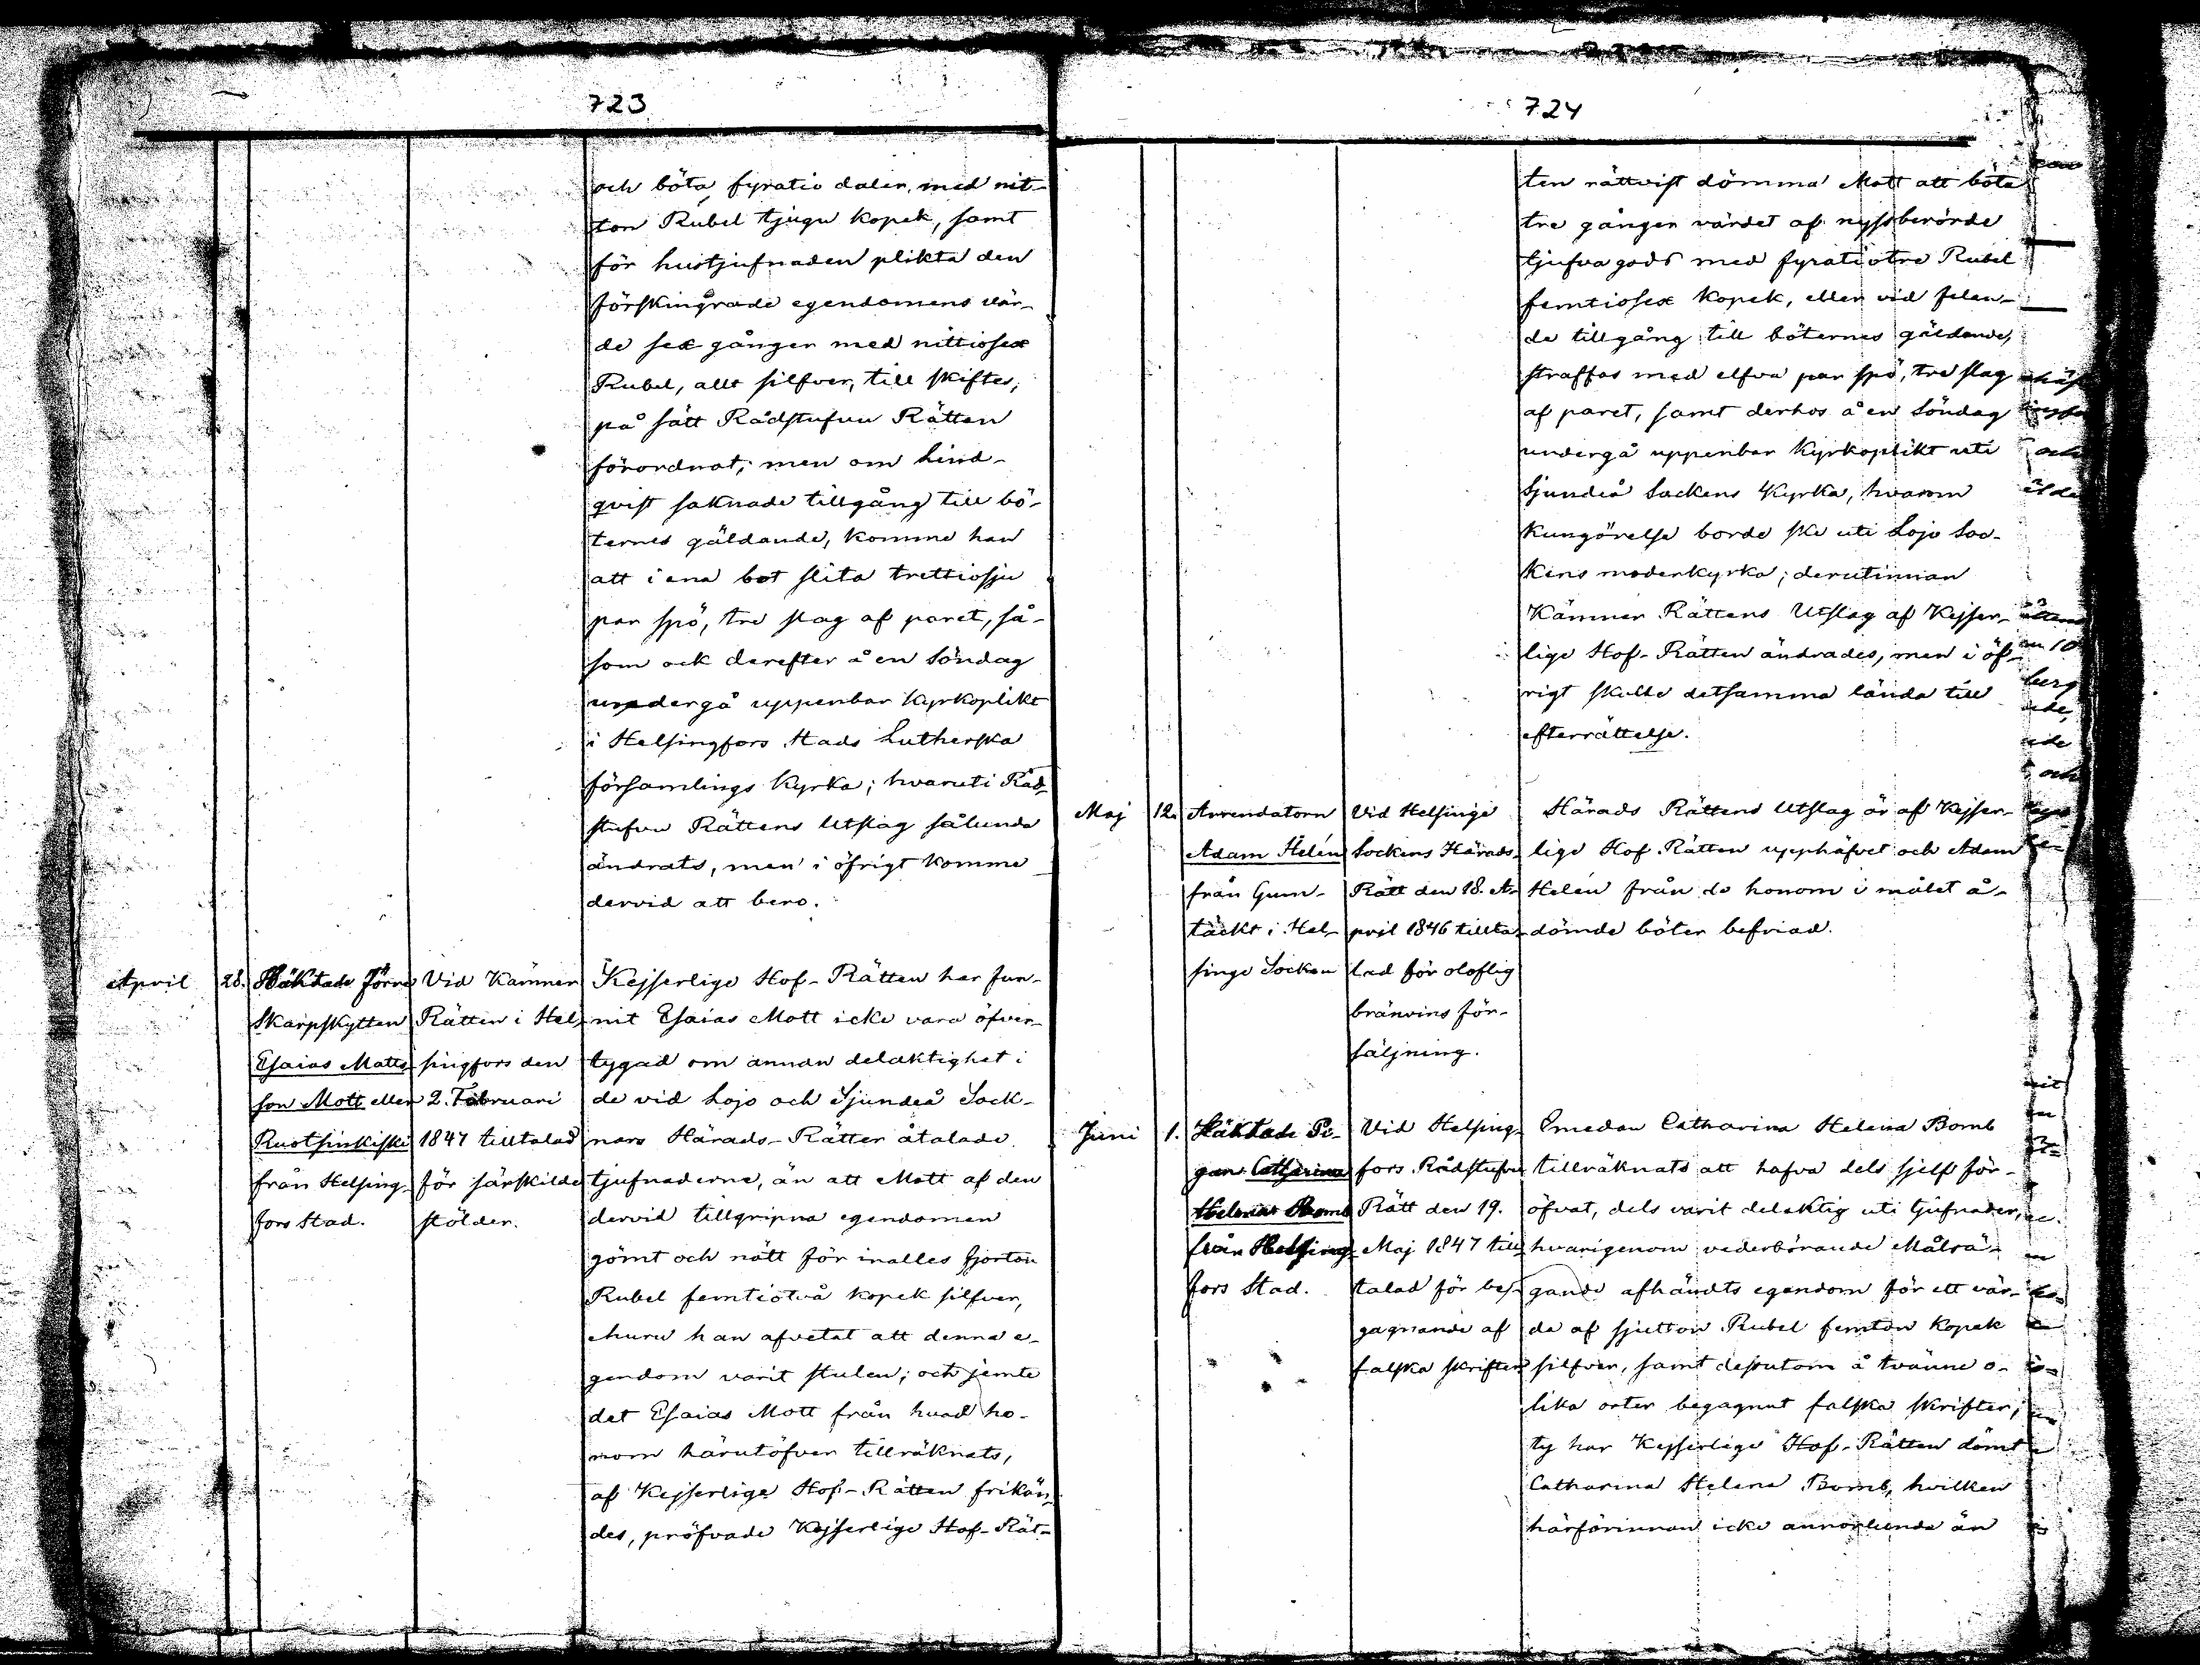 723
och böta fyratio daler, med nit-
ton Rubel tjugu kopek, samt
för hustjufnaden plikta den
förskingrade egendomens vär-
de sex gånger med nittiosex
Rubel, allt silfver, till skiftes,
på sätt Rådstufvu Rätten
förordnat; men om Lind-
qvist saknade tillgång till bö-
ternes gäldande, komme han
att i ena bot slita trettiosju
par spö, tre slag af paret, så-
som ock derefter å en Söndag
undergå uppenbar Kyrkoplikt
i Helsingfors Stads Lutherska
församlings Kyrka; hvaruti Råd-
stufvu Rättens Utslag sålunda
ändrats, men i öfrigt komme
dervid att bero.
April
28.
Häktade Förre
Skarpskytten
Esaias Matts-
son Mott eller
Ruotsinkiski
från Helsing-
fors Stad.
Vid Kämner
Rätten i Hel-
singfors den
2. Februari
1847 tilltalad
för särskilde
stölder.
Kejserlige Hof-Rätten har fun-
nit Esaias Mott icke vara öfver-
tygad om annan delaktighet i
de vid Lojo och Sjundeå Sock-
nars Härads-Rätter åtalade
tjufnaderne, än att Mott af den
dervid tillgripna egendomen
gömt och nött för inalles fjorton
Rubel femtiotvå kopek silfver,
ehuru han afvetat att denna e-
gendom varit stulen; och jemte
det Esaias Mott från hvad ho-
nom härutöfver tillräknats,
af Kejserlige Hof-Rätten frikän-
des, pröfvade Kejserlige Hof-Rät-
724
ten rättvist dömma Mott att böta
tre gånger värdet af nyssberörde
tjufvagods med fyratiotre Rubel
femtiosex kopek, eller vid felan-
de tillgång till böternes gäldande,
straffas med elfva par spö, tre slag
af paret, samt derhos å en Söndag
undergå uppenbar Kyrkoplikt uti
Sjundeå Sockens Kyrka, hvarom
kungörelse borde ske uti Lojo Soc-
kens moderkyrka; derutinnan
Kämner Rättens Utslag af Kejser-
lige Hof-Rätten ändrades, men i öf-
rigt skulle detsamma lända till
efterrättelse.
Maj
12.
Arrendatorn
Adam Helén
från Gum-
täckt i Hel-
singe Socken
Vid Helsinge
Sockens Härads-
Rätt den 18. A-
pril 1846 tillta-
lad för oloflig
bränvins för-
säljning.
Härads Rättens Utslag är af Kejser-
lige Hof-Rätten upphäfvet och Adam
Helén från de honom i målet å-
dömde böter befriad.
Juni
1.
Häktade Pi-
gan Catharina
Helena Bomb
från Helsing-
fors Stad.
Vid Helsing-
fors Rådstufvu
Rätt den 19.
Maj 1847 till-
talad för be-
gagnande af
falska skrifter
Emedan Catharina Helena Bomb
tillräknats att hafva dels sjelf för-
öfvat, dels varit delaktig uti tjufnader,
hvarigenom vederbörande Målsä-
gande afhändts egendom för ett vär-
de af sjutton Rubel femton kopek
silfver, samt dessutom å tvänne o-
lika orter begagnat falska skrifter;
ty har Kejserlige Hof-Rätten dömt
Catharina Helena Bomb, hvilken
härförinnan icke annorlunda än